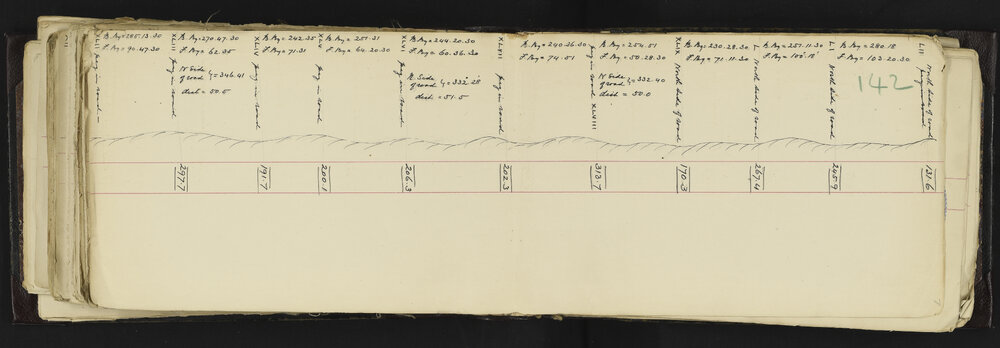 B. Aug = 285.13.30
F. Aug = 90.47.30
XLII Jug in road
B. Aug = 270.47.30
F. Aug = 62.35
XLIII Jug in road
N Side of road } = 346.41
dist = 50.5
B. Aug = 242.35
F. Aug = 71.31
XLIV Jug in road
B. Aug = 251.31
F. Aug = 64.20.30
XLV Jug in road
B. Aug = 244.20.30
F. Aug = 60.36.30
XLVI Jug in road
N. Side of road } = 332.28
dist = 51.5
XLVII Jug in road
B. Aug = 240.36.30
F. Aug = 74.51
Jug in road XLVIII
B. Aug = 254.51
F. Aug = 50.28.30
N Side of road } = 332.40
dist = 50.0
XLIX North side of road
B. Aug = 230.28.30
F. Aug = 71.11.30
L North side of road
B. Aug = 251.11.30
F. Aug = 100.18
LI North side of road
B. Aug = 280.18
F. Aug = 103.20.30
LII North side of road
Jug in road
142
297.7
191.7
200.1
206.3
202.3
313.7
170.3
267.4
245.9
131.6